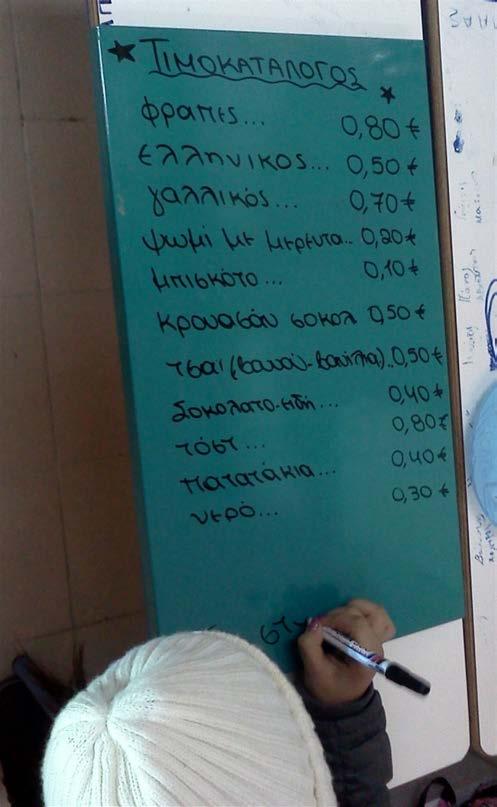 ΤΙΜΟΚΑΤΑΛΟΓΟΣ
φραπες... 0,80 €
ελληνικος... 0,50 €
γαλλικός... 0,70 €
ψωμί με μερεντα.. 0,20 €
μπισκότο... 0,10 €
κρουασάν σοκολ 0,50 €
τσαϊ (βουνού-βανίλια)..0,50 €
Σοκολατο-ειδή... 0,40 €
τόστ... 0,80 €
πατατάκια... 0,40 €
νερό... 0,30 €